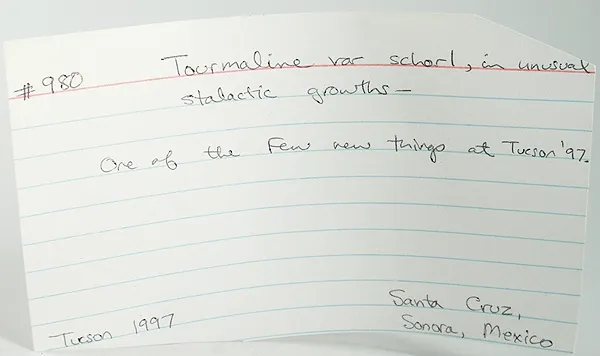 #980
Tourmaline var schorl, in unusual
stalactic growths —
One of the few new things at Tucson '97.
Santa Cruz,
Tucson 1997
Sonora, Mexico